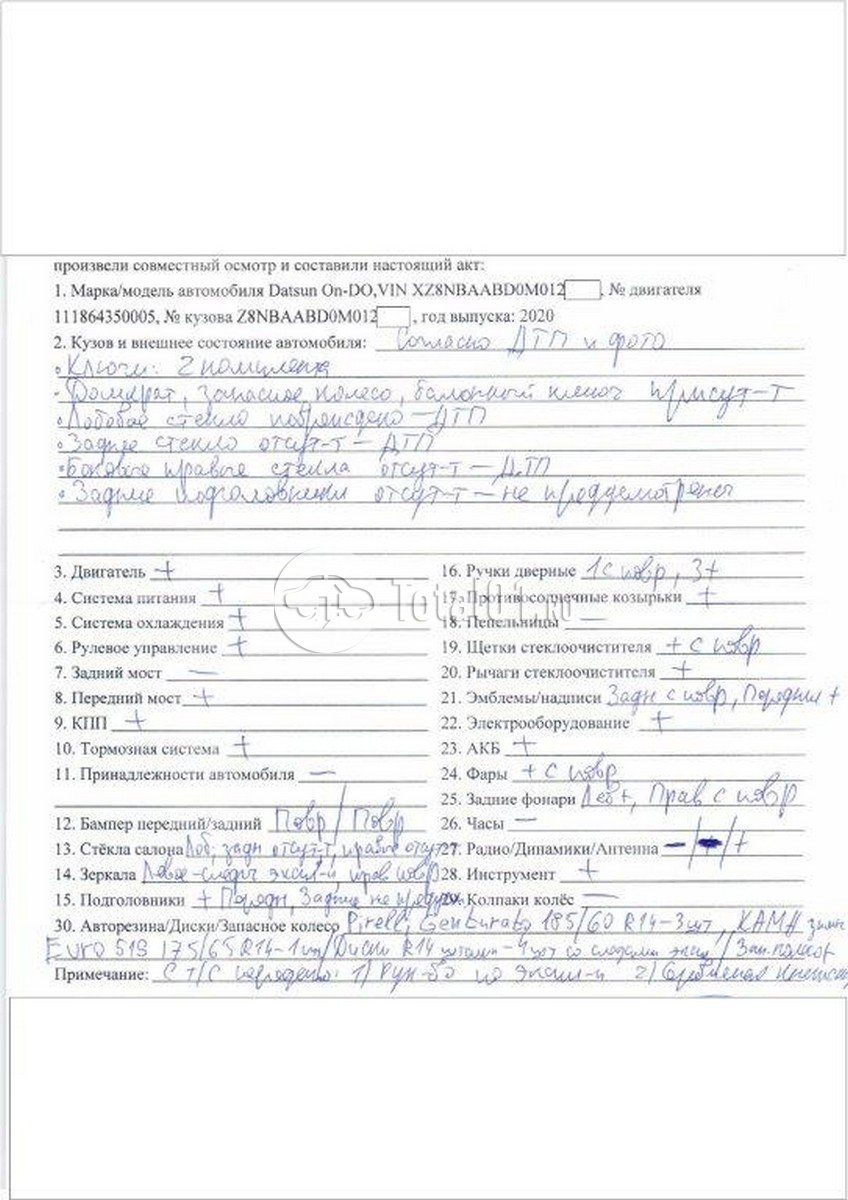 произвели совместный осмотр и составили настоящий акт:
1. Марка/модель автомобиля Datsun On-DO,VIN XZ8NBAABD0M012 , № двигателя
111864350005, № кузова Z8NBAABD0M012 , год выпуска: 2020
2. Кузов и внешнее состояние автомобиля: Согласно ДТП и фото
• Ключи: 2 комплекта
• Домкрат, запасное колесо, балонный ключ присут-т
• Лобовое стекло повреждено – ДТП
• Заднее стекло отсут-т – ДТП
• Боковые правые стекла отсут-т – ДТП
• Задние подголовники отсут-т – не предусмотрены
3. Двигатель +
4. Система питания +
5. Система охлаждения +
6. Рулевое управление +
7. Задний мост —
8. Передний мост +
9. КПП +
10. Тормозная система +
11. Принадлежности автомобиля —
12. Бампер передний/задний Повр / Повр
13. Стёкла салона Лоб, задн отсут-т, правые отсут-т
14. Зеркала Левое - следы экспл-и, прав повр
15. Подголовники + Передн, Задние не
16. Ручки дверные 1 с повр, 3+
17. Противосолнечные козырьки +
18. Пепельницы —
19. Щетки стеклоочистителя + с повр
20. Рычаги стеклоочистителя +
21. Эмблемы/надписи Задн с повр, Передние +
22. Электрооборудование +
23. АКБ +
24. Фары + с повр
25. Задние фонари Лев +, Прав с повр
26. Часы —
27. Радио/Динамики/Антенна —/+/+
28. Инструмент +
29. Колпаки колёс —
30. Авторезина/Диски/Запасное колесо Pirelli 185/60 R14 - 3 шт, КАМА
Euro 519 175/65 R14 - 1 шт/Диски R14 штамп - 4 шт со следами экспл/
Примечание: С Т/С передано: 1) Рук-во по экспл-и 2) Сервисная книжка
Total01.ru